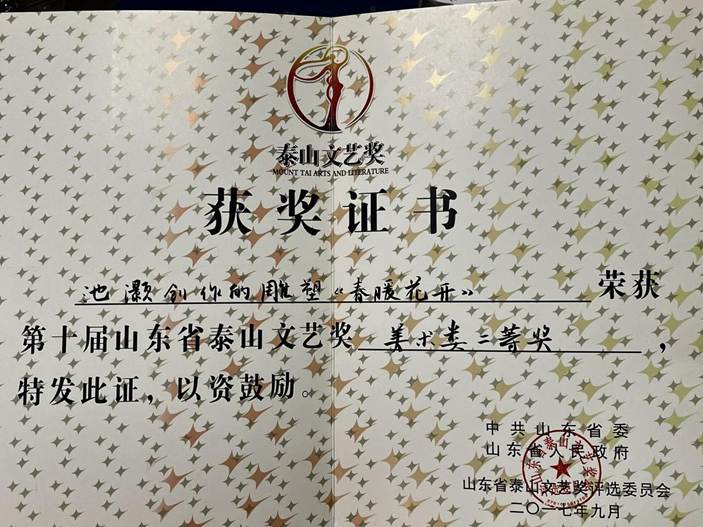 泰山文艺奖
MOUNT TAI ARTS AND LITERATURE
获奖证书
池灏创作的雕塑《春暖花开》荣获
第十届山东省泰山文艺奖美术类三等奖，
特发此证，以资鼓励。
中共山东省委
山东省人民政府
山东省泰山文艺奖评选委员会
二〇一七年九月